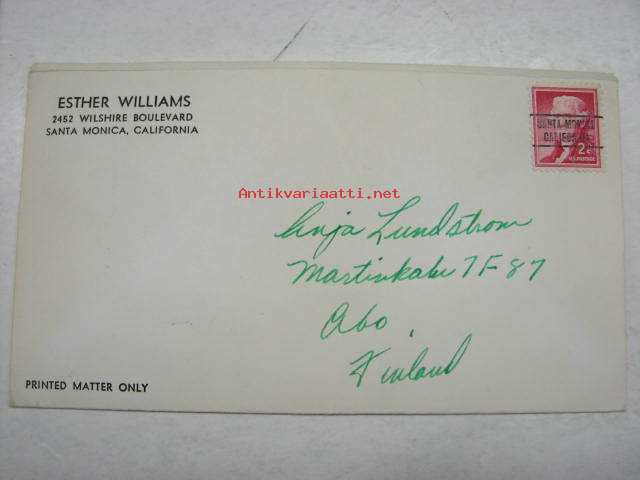 ESTHER WILLIAMS
2452 WILSHIRE BOULEVARD
SANTA MONICA, CALIFORNIA
SANTA MONICA
CALIFORNIA
2¢
U.S. POSTAGE
Antikvariaatti.net
Anja Lundstrom
Martinkatu 7 F 87
Abo,
Finland
PRINTED MATTER ONLY